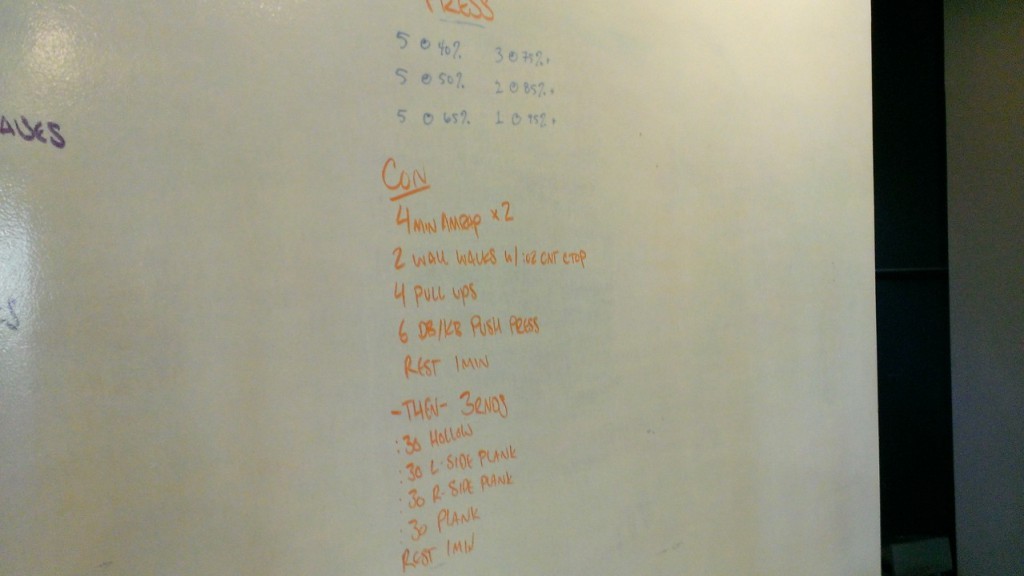 PRESS
5 @ 40% 3 @ 75%+
5 @ 50% 2 @ 85%+
5 @ 65% 1 @ 95%+
CON
4 MIN AMRAP x2
2 WALL WALKS W/ :02 CNT @ TOP
4 PULL UPS
6 DB/KB PUSH PRESS
REST 1 MIN
-THEN- 3 RNDS
:30 HOLLOW
:30 L-SIDE PLANK
:30 R-SIDE PLANK
:30 PLANK
REST 1 MIN